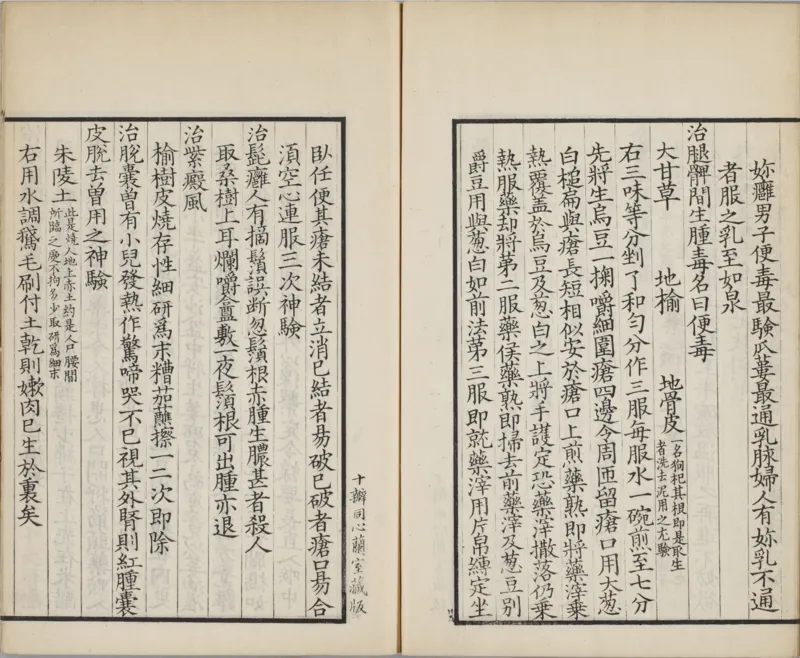 妳癰男子便毒最驗瓜蔞最通乳脉婦人有妳乳不通
者服之乳至如泉
治腿髀間生腫毒名曰便毒
大甘草 地榆 地骨皮一名狗杞其根即是取生者洗去泥用之尤驗
右三味等分剉了和勻分作三服每服水一碗煎至七分
先將生烏豆一掬嚼細圍瘡四邊令周匝留瘡口用大葱
白槌扁與瘡長短相似安於瘡口上煎藥熟即將藥滓乗
熱覆蓋於烏豆及葱白之上將手護定恐藥滓撒落仍乗
熱服藥却將第二服藥侯藥熟即掃去前藥滓及葱豆别
爵豆用與葱白如前法第三服即就藥滓用片帛縛定坐
臥任便其瘡未結者立消已結者易破已破者瘡口易合
湏空心連服三次神驗
治髭癰人有摘鬚誤斷忽鬚根赤腫生膿甚者殺人
取桑樹上耳爛嚼盦敷一夜鬚根可出腫亦退
治紫癜風
榆樹皮燒存性細研爲末糟茄蘸擦一二次即除
治脫囊曽有小兒發熱作驚啼哭不已視其外腎則紅腫囊
皮脫去曽用之神驗
朱陵土此是燒人地上赤土約是人戶腰間所臨之處不拘多少取研爲細末
右用水調鵞毛刷付土乾則嫰肉已生於裏矣
十瓣同心蘭室藏版